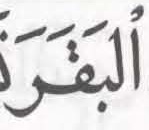 ٱلبَقَرَ